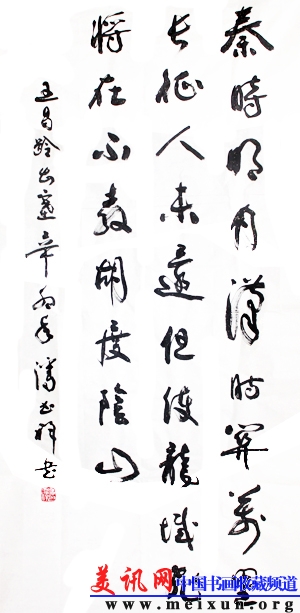 秦時明月漢时關萬里
長征人未還但使龍城飛
將在不教胡度陰山
王昌齡出塞辛卯年 祥書
美讯网 中国书画收藏频道
www.meixun.org